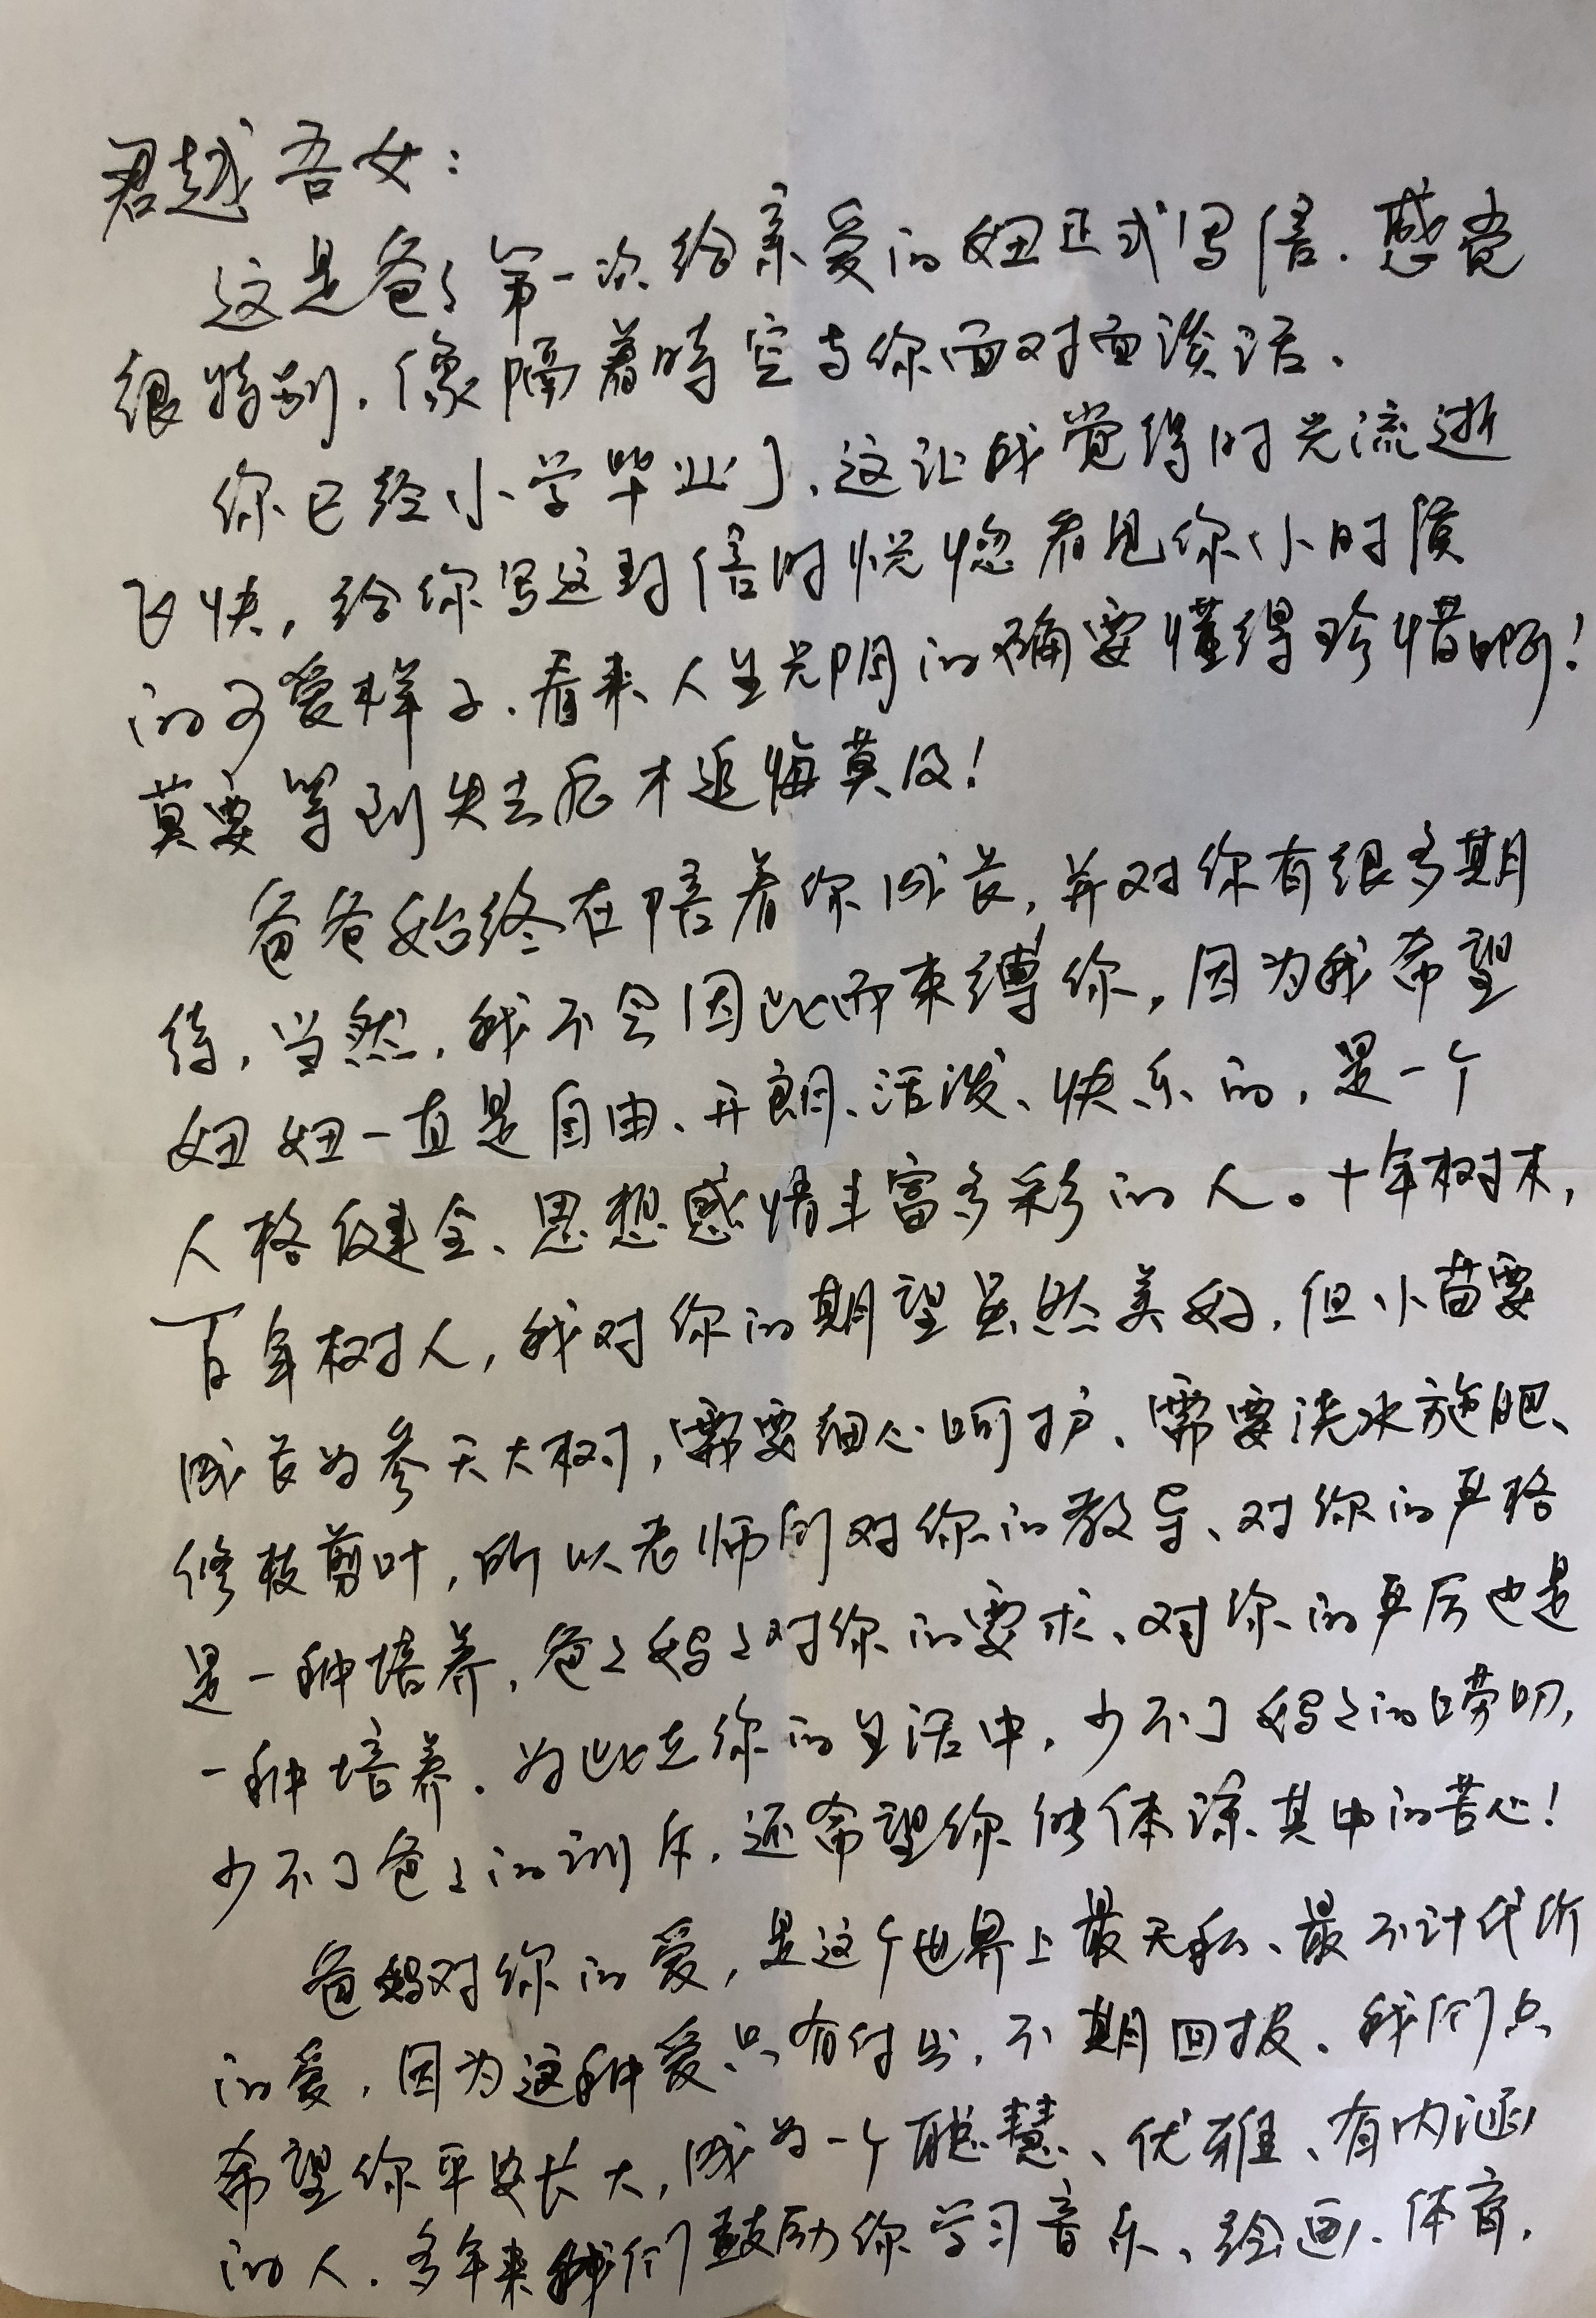 君越吾女：
这是爸爸第一次给亲爱的妞正式写信.感觉
很特别.像隔着時空与你面对面谈话.
你已经小学毕业了,这让我觉得时光流逝
飞快,给你写这封信时恍惚看见你小时候
的可爱样子.看来人生光阴的确要懂得珍惜啊!
莫要等到失去后才追悔莫及!
爸爸始终在陪着你成长,并对你有很多期
待,当然,我不会因此而束缚你,因为我希望
妞妞一直是自由、开朗、活泼、快乐的,是一个
人格健全、思想感情丰富多彩的人。十年树木,
百年树人,我对你的期望虽然美好,但小苗要
成长为参天大树,需要细心呵护、需要浇水施肥、
修枝剪叶,所以老师们对你的教导、对你的严格
是一种培养,爸爸妈妈对你的要求、对你的严厉也是
一种培养.为此在你的生活中,少不了妈妈的唠叨,
少不了爸爸的训斥.还希望你能体谅其中的苦心!
爸妈对你的爱,是这个世界上最无私、最不计代价
的爱,因为这种爱只有付出,不期回报、我们只
希望你平安长大,成为一个聪慧、优雅、有内涵
的人.多年来我们鼓励你学习音乐、绘画、体育,